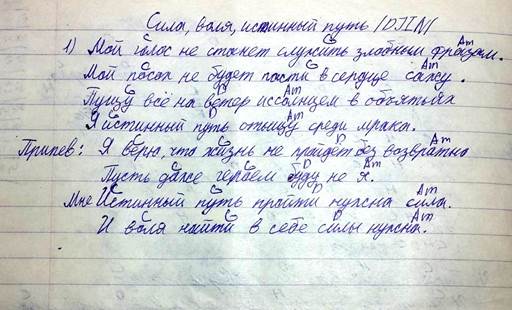 Сила, воля, истинный путь /DJIM/
1) Мой голос не станет служить злобным фразам.
Мой посох не будет пасти в сердце сажу.
Пущу всё на ветер и солнцем в объятьях
Я истинный путь отыщу среди мрака.
Припев: Я верю, что жизнь не пройдёт без возвратно
Пусть даже героем буду не я.
Мне Истинный путь пройти нужна сила.
И воля найти в себе силы нужна.